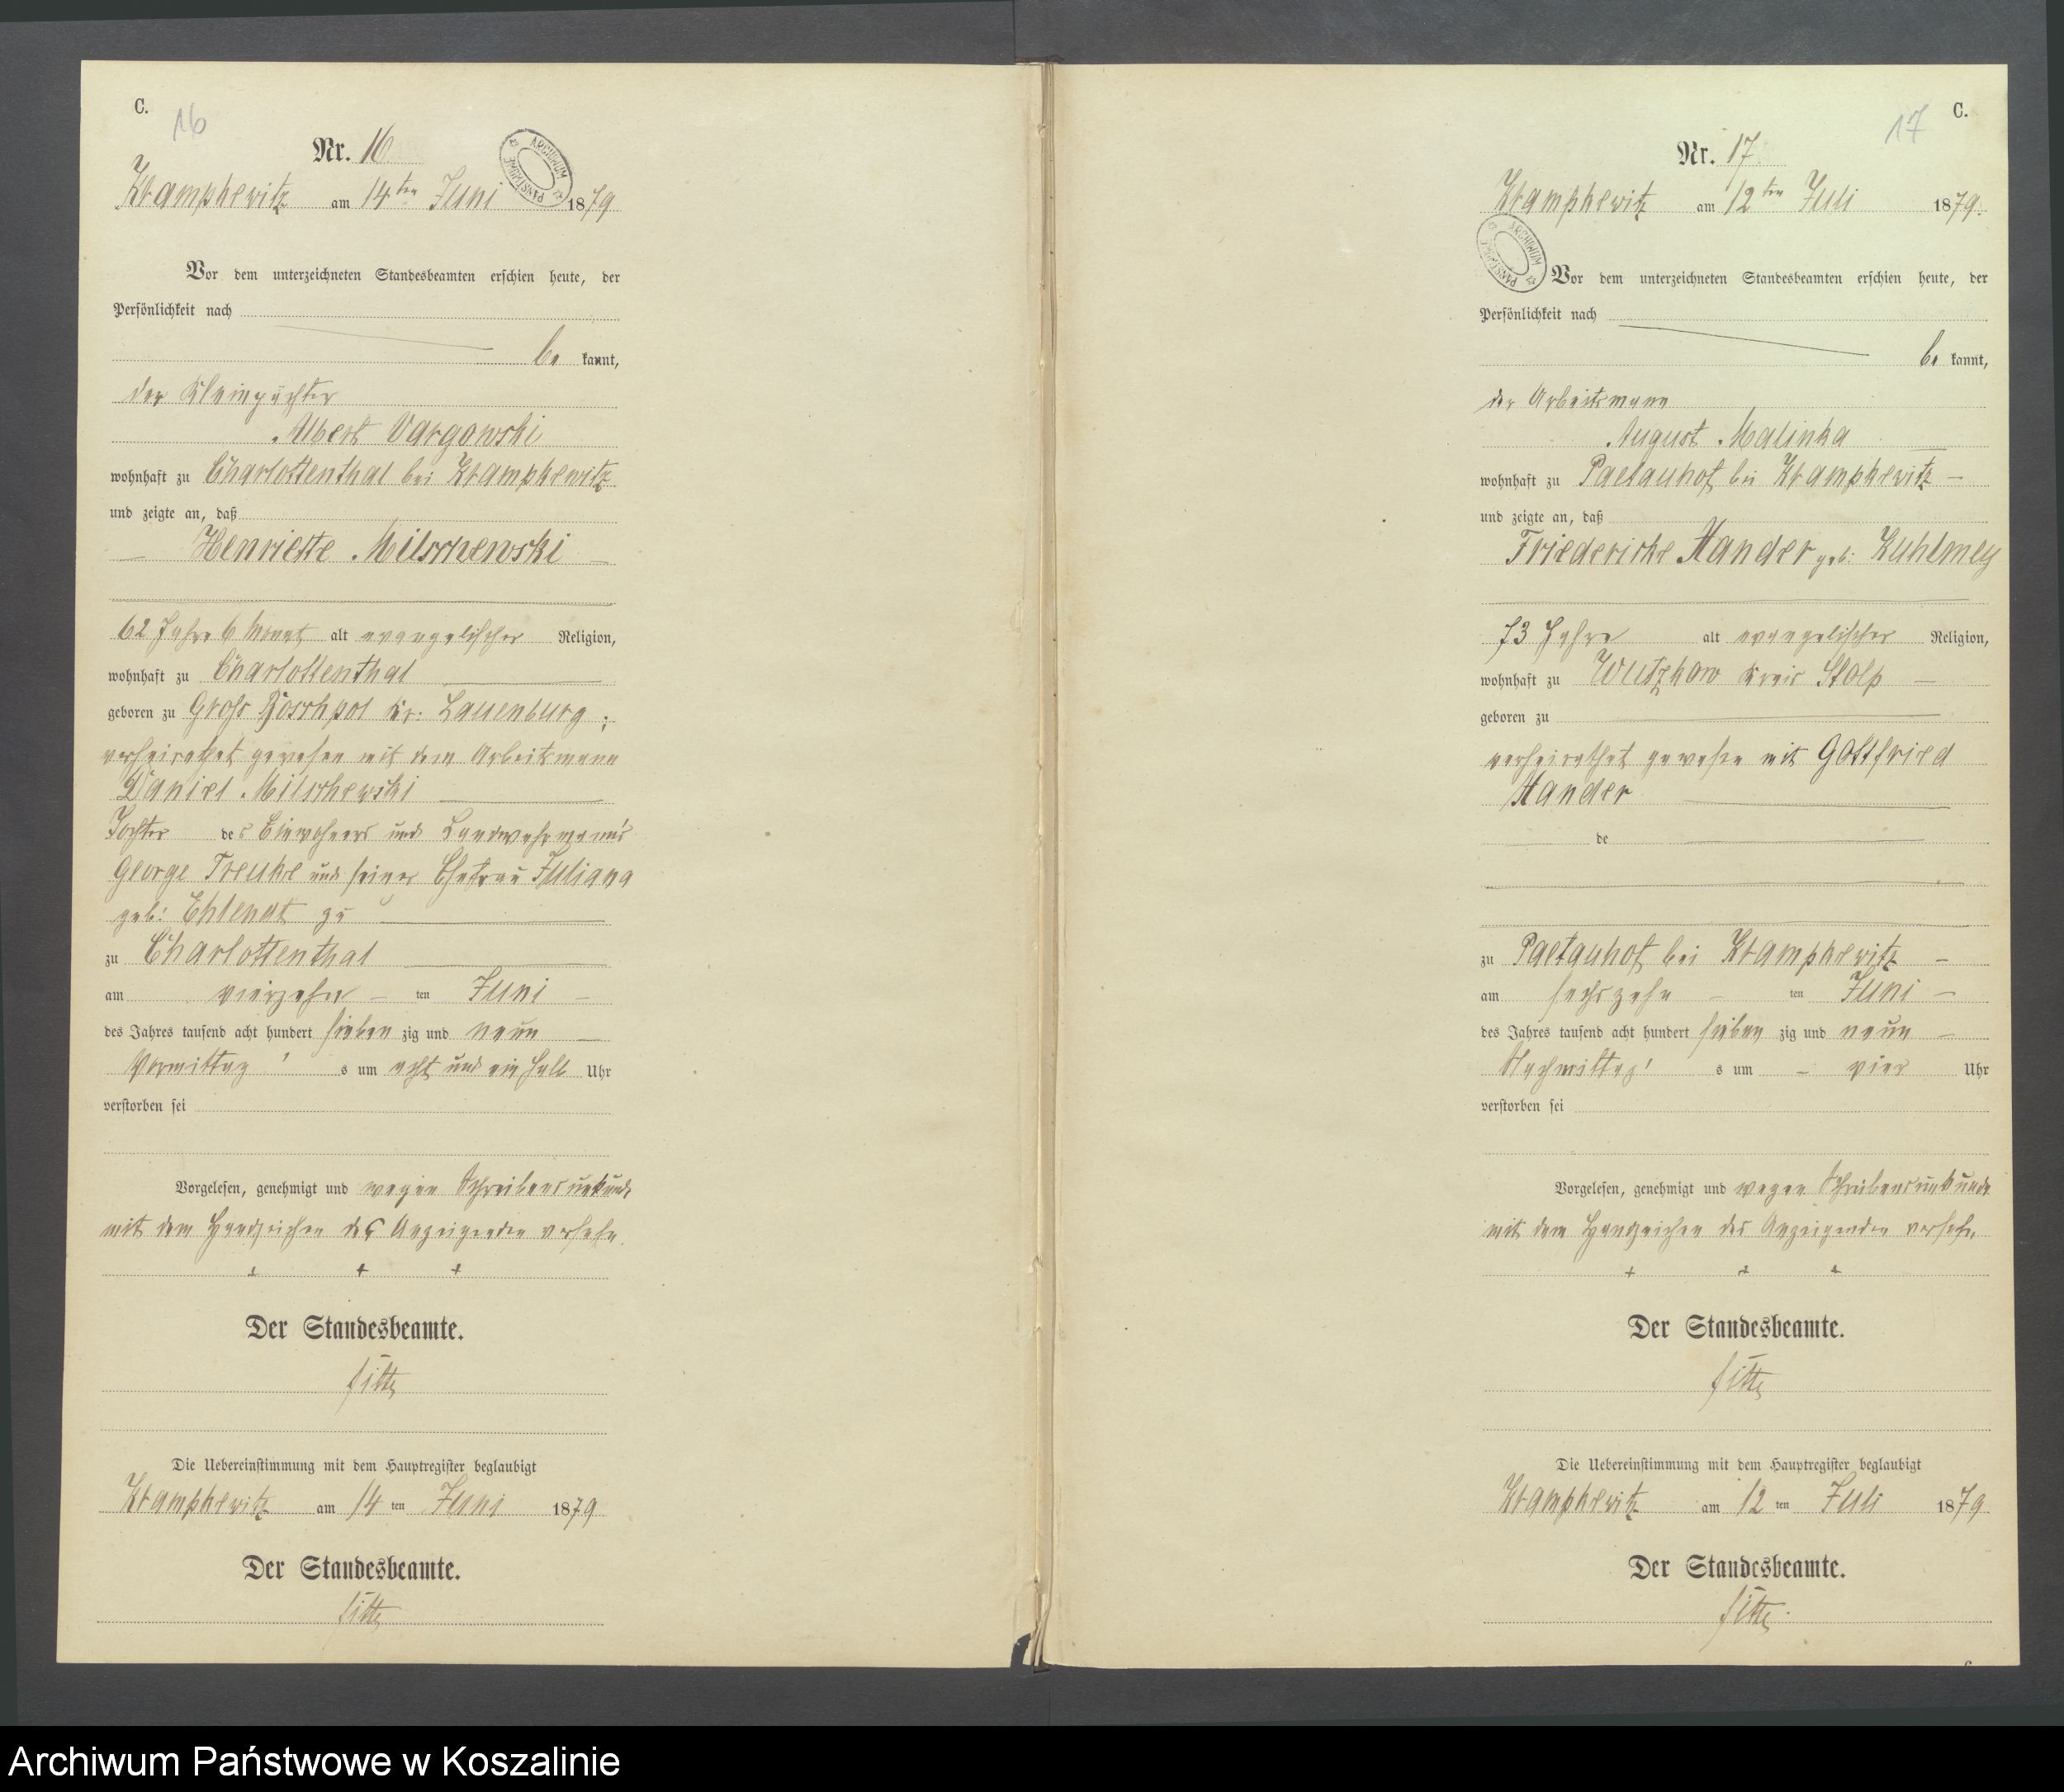 C.
16
Nr. 16
ARCHIWUM PAŃSTWOWE
Krampkewitz am 14ten Juni 1879
Vor dem unterzeichneten Standesbeamten erschien heute, der
Persönlichkeit nach
be kannt,
der Kleinpächter
Albert Vargowski
wohnhaft zu Charlottenthal bei Krampkewitz
und zeigte an, daß
Henriette Milschewski
62 Jahre 6 Monat alt evangelischer Religion,
wohnhaft zu Charlottenthal
geboren zu Groß Boschpol Kr. Lauenburg;
verheirathet gewesen mit dem Arbeitsmann
Daniel Milschewski
Tochter des Einwohners und Landwehrmann's
George Treuke und seiner Ehefrau Juliana
geb: Ehlendt zu
zu Charlottenthal
am vierzehn ten Juni
des Jahres tausend acht hundert sieben zig und neun
Vormittag's um acht und ein halb Uhr
verstorben sei
Vorgelesen, genehmigt und wegen Schreibensunkunde
mit dem Handzeichen des Anzeigenden versehn.
+ + +
Der Standesbeamte.
Der Uebereinstimmung mit dem Hauptregister beglaubigt
Krampkewitz am 14 ten Juni 1879
Der Standesbeamte.
C.
17
Nr. 17
Krampkewitz am 12ten Juli 1879.
ARCHIWUM PAŃSTWOWE
Vor dem unterzeichneten Standesbeamten erschien heute, der
Persönlichkeit nach
be kannt,
der Arbeitsmann
August Malinka
wohnhaft zu Paetauhof bei Krampkewitz
und zeigte an, daß
Friedericke Hander geb: Kuhlmey
73 Jahre alt evangelischer Religion,
wohnhaft zu Wutzkow Kreis Stolp
geboren zu
verheirathet gewesen mit Gottfried
Hander
de
zu Paetauhof bei Krampkewitz
am sechszehn ten Juni
des Jahres tausend acht hundert sieben zig und neun
Nachmittag's um vier Uhr
verstorben sei
Vorgelesen, genehmigt und wegen Schreibensunkunde
mit dem Handzeichen des Anzeigenden versehn
+ + +
Der Standesbeamte.
Die Uebereinstimmung mit dem Hauptregister beglaubigt
Krampkewitz am 12 ten Juli 1879
Der Standesbeamte.
Archiwum Państwowe w Koszalinie